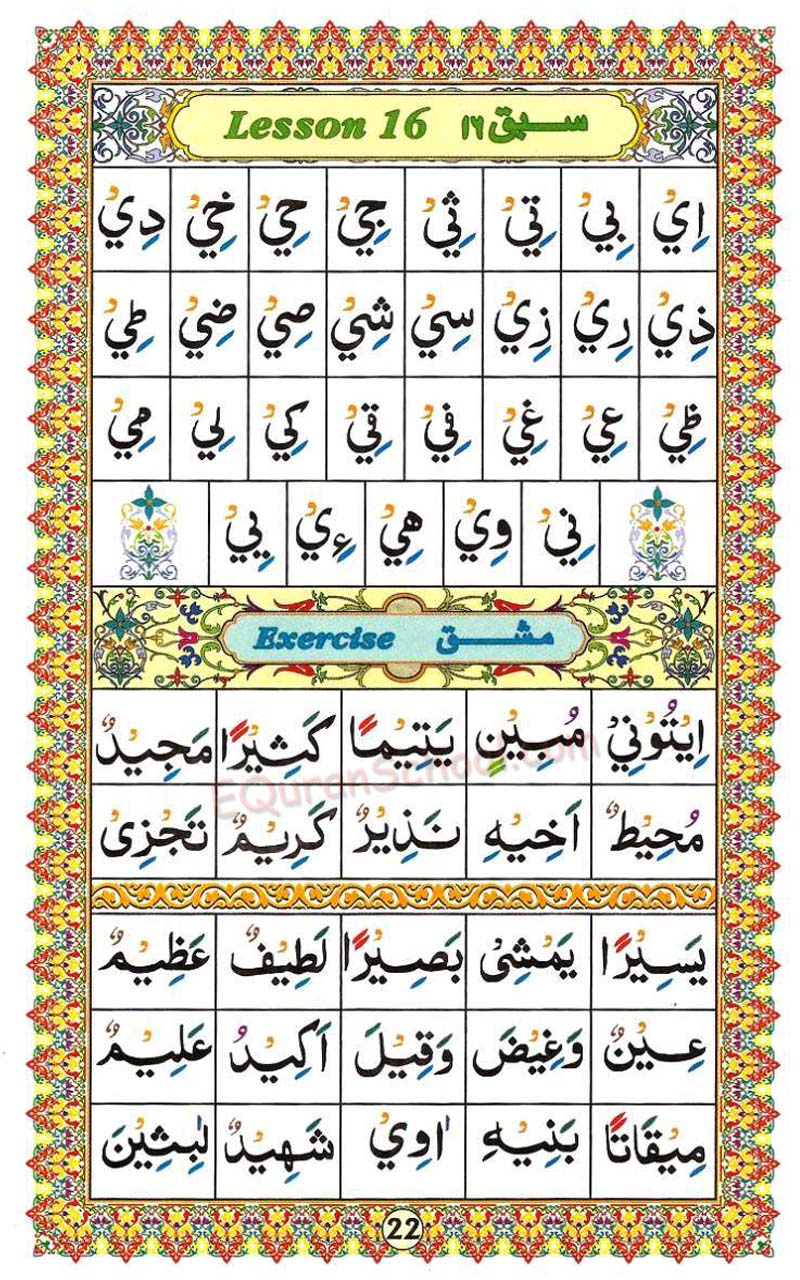 Lesson 16 سبق ١٦
اِيْ بِيْ تِيْ ثِيْ جِيْ حِيْ خِيْ دِيْ
ذِيْ رِيْ زِيْ سِيْ شِيْ صِيْ ضِيْ طِيْ
ظِيْ عِيْ غِيْ فِيْ قِيْ كِيْ لِيْ مِيْ
نِيْ وِيْ هِيْ ءِيْ يِيْ
Exercise مشق
اِيْتُوْنِيْ مُبِيْنٍ يَتِيْمًا كَثِيْرًا مَجِيْدٌ
مُحِيْطٌ اَخِيْهِ نَذِيْرٌ كَرِيْمٌ تَجْزِىْ
EQuranSchool.com
يَسِيْرًا يَمْشِىْ بَصِيْرًا لَطِيْفٌ عَظِيْمٌ
عِيْنٌ وَغِيْضَ وَقِيْلَ اَكِيْدُ عَلِيْمٌ
مِيْقَاتًا بَنِيْهِ اٰوِيْ شَهِيْدٌ لٰبِثِيْنَ
22